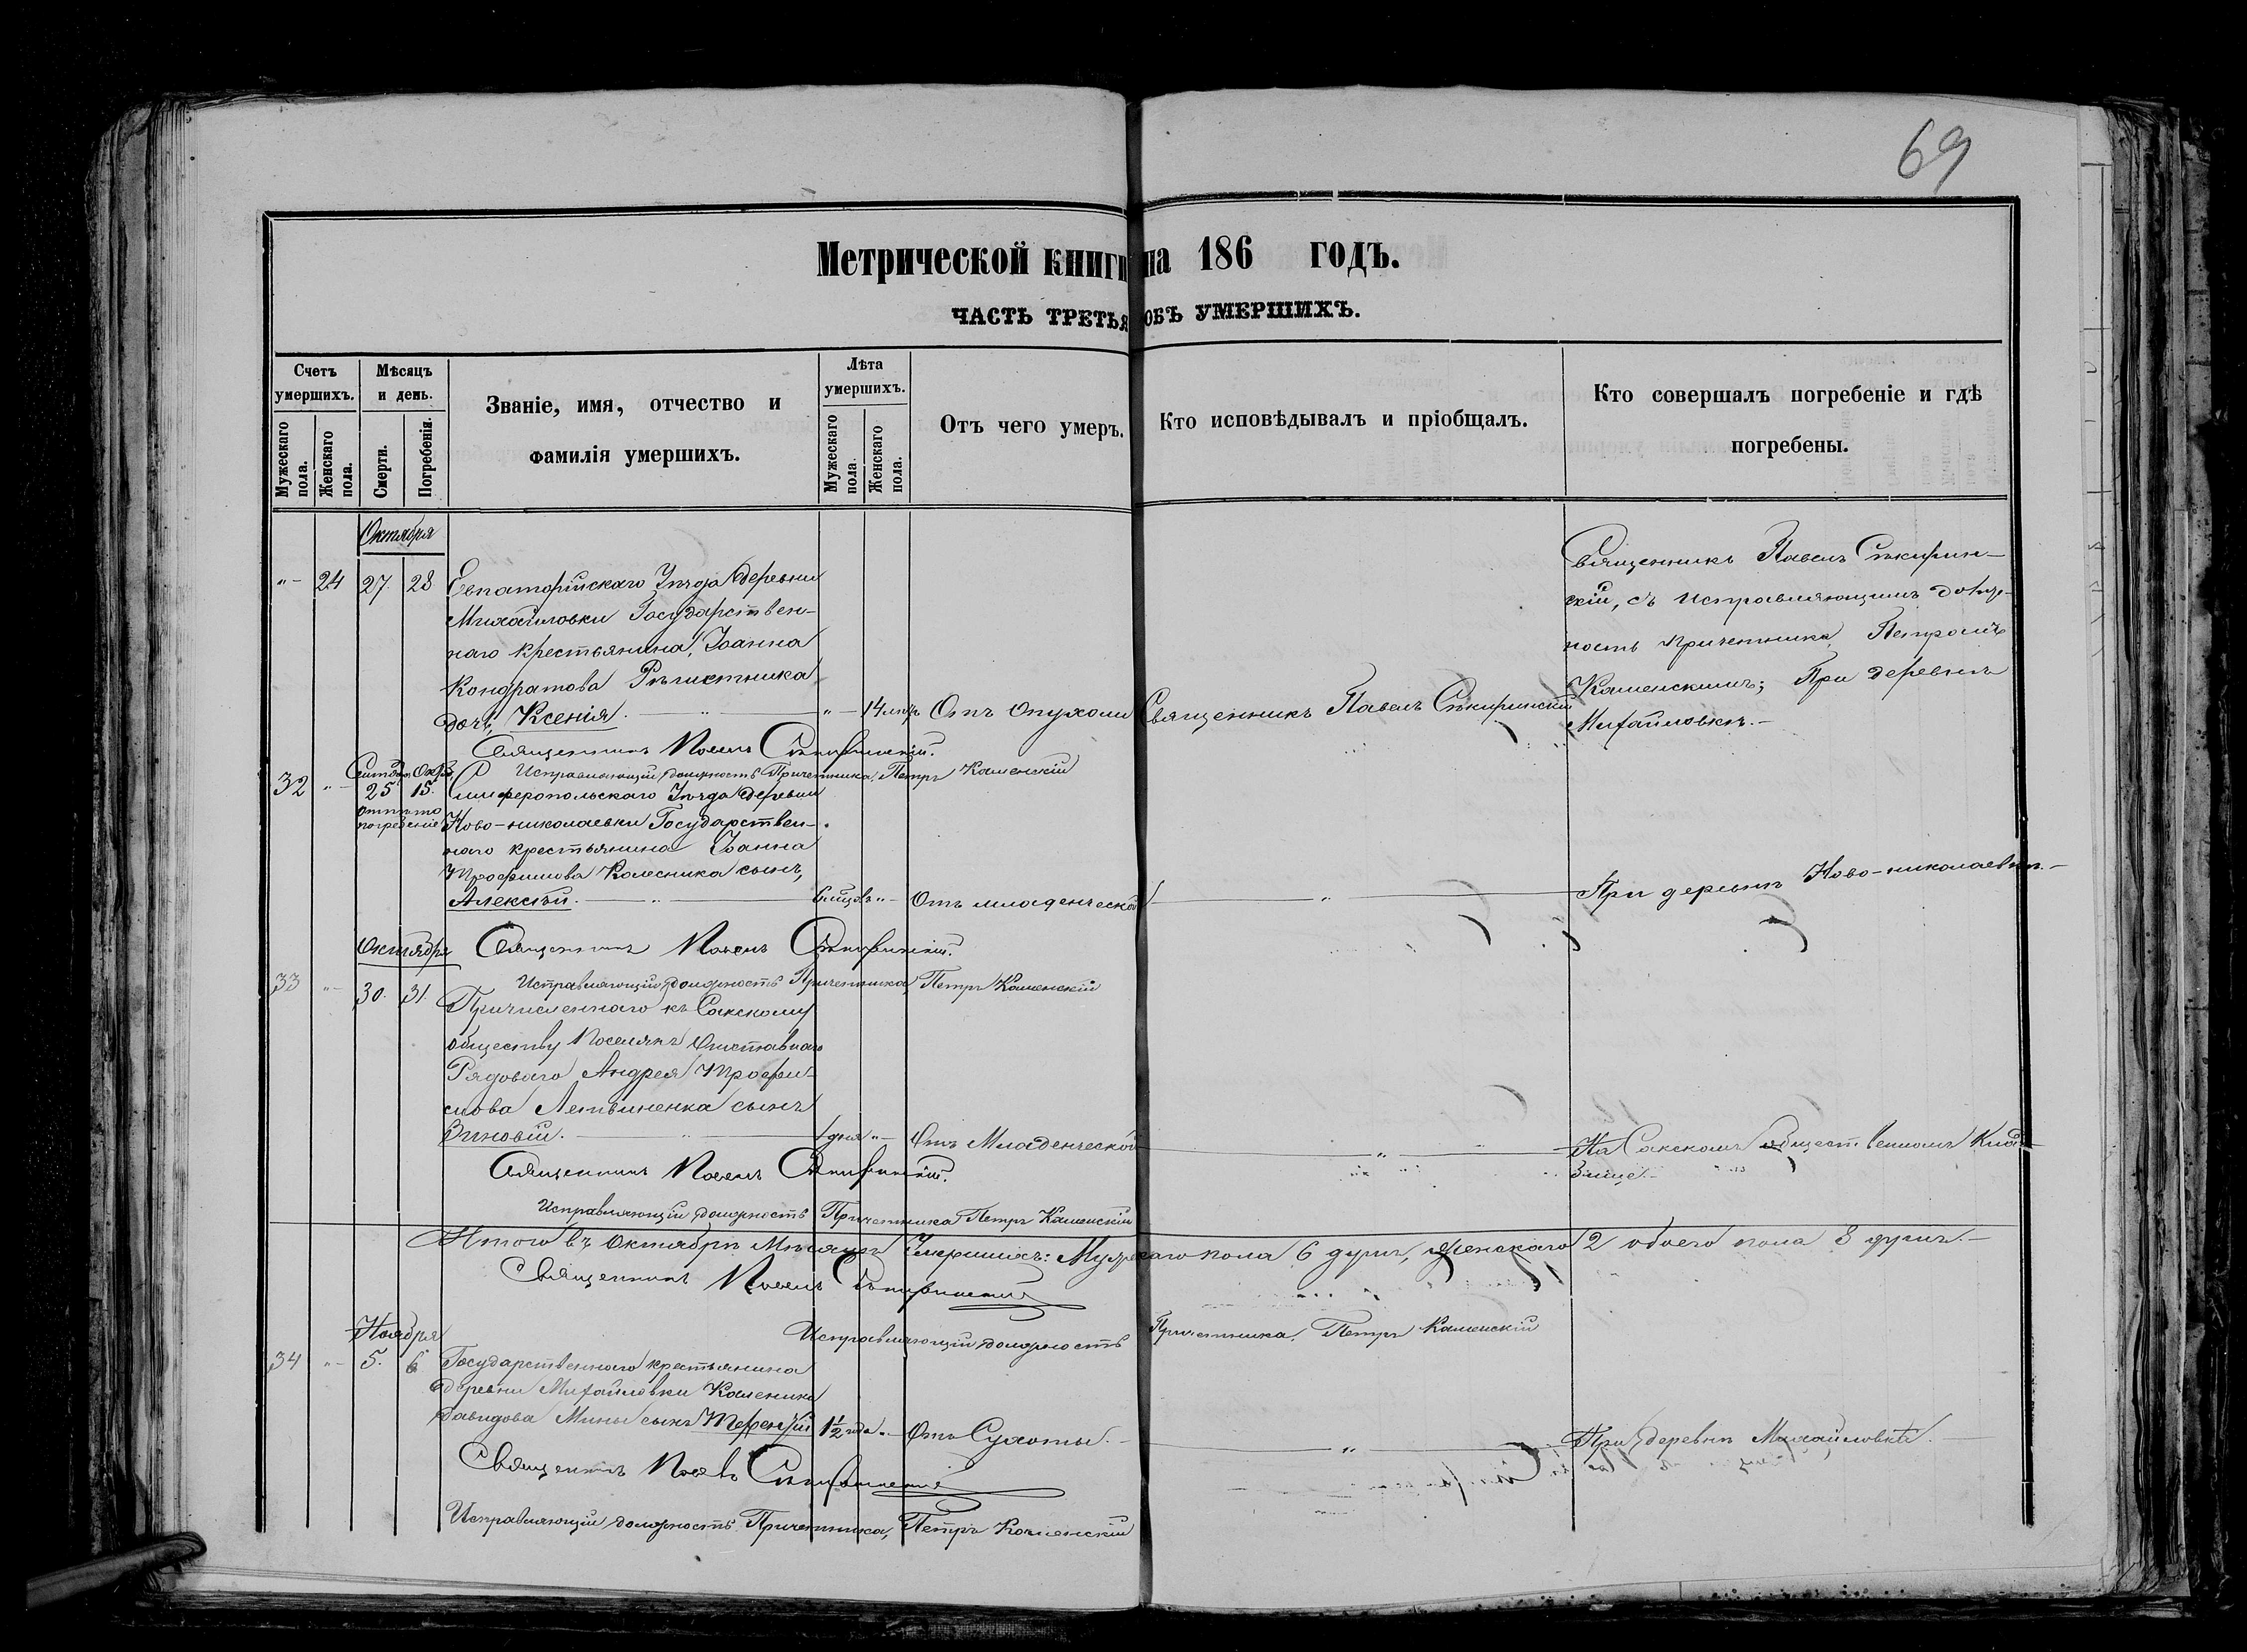 69
Метрической книги на 186 годъ.
ЧАСТЬ ТРЕТЬЯ ОБЪ УМЕРШИХЪ.
Счетъ умершихъ.
Мужескаго пола.
Женскаго пола.
Мѣсяцъ и день.
Смерти.
Погребенія.
Званіе, имя, отчество и
фамилія умершихъ.
Лѣта умершихъ.
Мужескаго пола.
Женскаго пола.
Отъ чего умеръ.
Кто исповѣдывалъ и пріобщалъ.
Кто совершалъ погребеніе и гдѣ
погребены.
Октября
"- 24 27. 28 Евпаторійскаго Уѣзда деревни
Михайловки Государствен-
наго крестьянина, Іоанна
Кондратова
дочь, Ксенія. " "- 14 лѣтъ Отъ опухоли Священникъ Павелъ Сѣкиринскій
Священникъ Павелъ Сѣкирин-
скій, съ исправляющимъ долж-
ность причетника Петромъ
Каменскимъ; При деревнѣ
Михайловкѣ.-
Священникъ Павелъ Сѣкиринскій.
Исправляющій должность Причетника, Петръ Каменскій
32 "- 25 15. Симферопольскаго Уѣзда деревни
погребеніе Ново-николаевки Государствен-
наго крестьянина Іоанна
Трофимова Колесника сынъ,
Алексѣй. " 6 мцовъ "- Отъ младенческой " При деревнѣ Ново-николаевкѣ.-
Октября Священникъ Павелъ Сѣкиринскій.
Исправляющій должность Причетника, Петръ Каменскій
33 "- 30. 31. Причисленнаго къ Сакскому
обществу Поселянъ отставнаго
Рядоваго Андрея Трофи-
мова сынъ
Зиновій. " 1 дня "- Отъ Младенческой " На Сакскомъ общественномъ Клад-
бище.-
Священникъ Павелъ Сѣкиринскій.
Исправляющій должность Причетника Петръ Каменскій
Итого въ Октябрѣ Мѣсяцѣ Умершихъ: Мужескаго пола 6 душъ, женскаго 2 обоего пола 8 душъ.-
Священникъ Павелъ Сѣкиринскій
Исправляющій должность Причетника, Петръ Каменскій
Ноября
34 "- 5. 6 Государственнаго крестьянина
деревни Михайловки Каленика
Давидова Мины сынъ Терентій 1½ года "- Отъ Сухоты.- " При деревнѣ Михайловкѣ.
Священникъ Павелъ Сѣкиринскій
Исправляющій должность Причетника, Петръ Каменскій